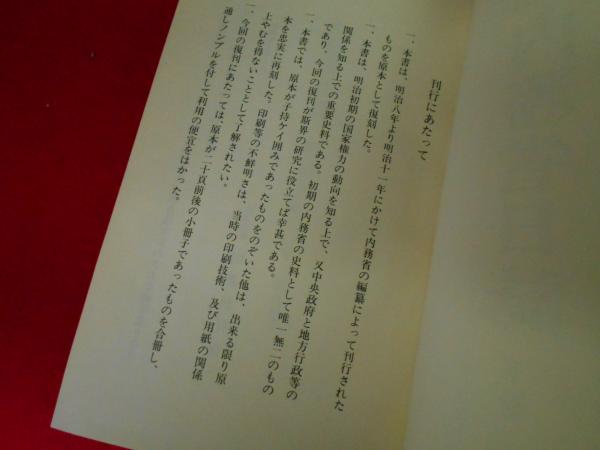 刊行にあたって
一、本書は、明治八年より明治十一年にかけて内務省の編纂によって刊行された
ものを原本として復刻した。
一、本書は、明治初期の国家権力の動向を知る上で、又中央政府と地方行政等の
関係を知る上での重要史料である。初期の内務省の史料として唯一無二のもの
であり、今回の復刊が斯界の研究に役立てば幸甚である。
一、本書では、原本が子持ケイ囲みであったものをのぞいた他は、出来る限り原
本を忠実に再刻した。印刷等の不鮮明さは、当時の印刷技術、及び用紙の関係
上やむを得ないこととして了解されたい。
一、今回の復刊にあたっては、原本が二十頁前後の小冊子であったものを合冊し、
通しノンブルを付して利用の便宜をはかった。